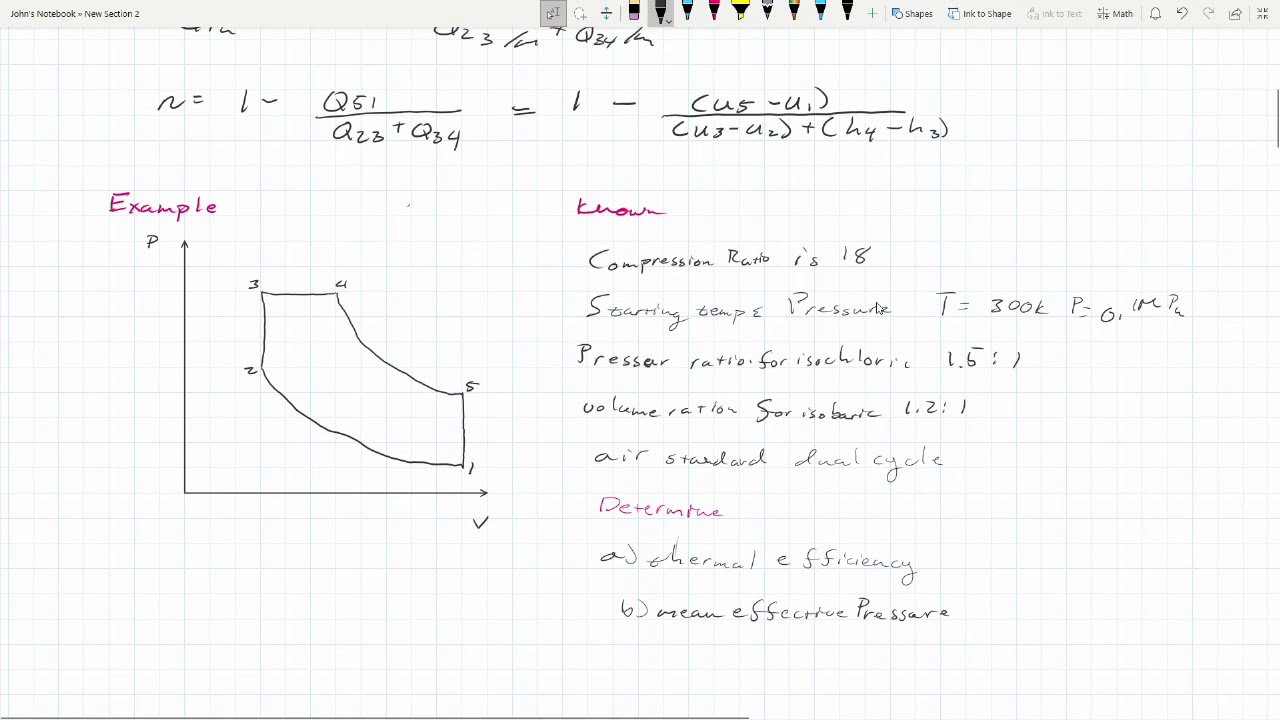 John's Notebook » New Section 2
Shapes Ink to Shape Ink to Text Math
Q23/m + Q34/m
n = 1 - Q51 / Q23 + Q34 = 1 - (u5 - u1) / (u3 - u2) + (h4 - h3)
Example
Known
P
3 4
2
5
1
V
Compression Ratio is 18
Starting temp & Pressure T = 300k P = 0.1MPa
Presser ratio for isochloric 1.5:1
volume ration for isobaric 1.2:1
air standard dual cycle
Determine
a) thermal efficiency
b) mean effective Pressure